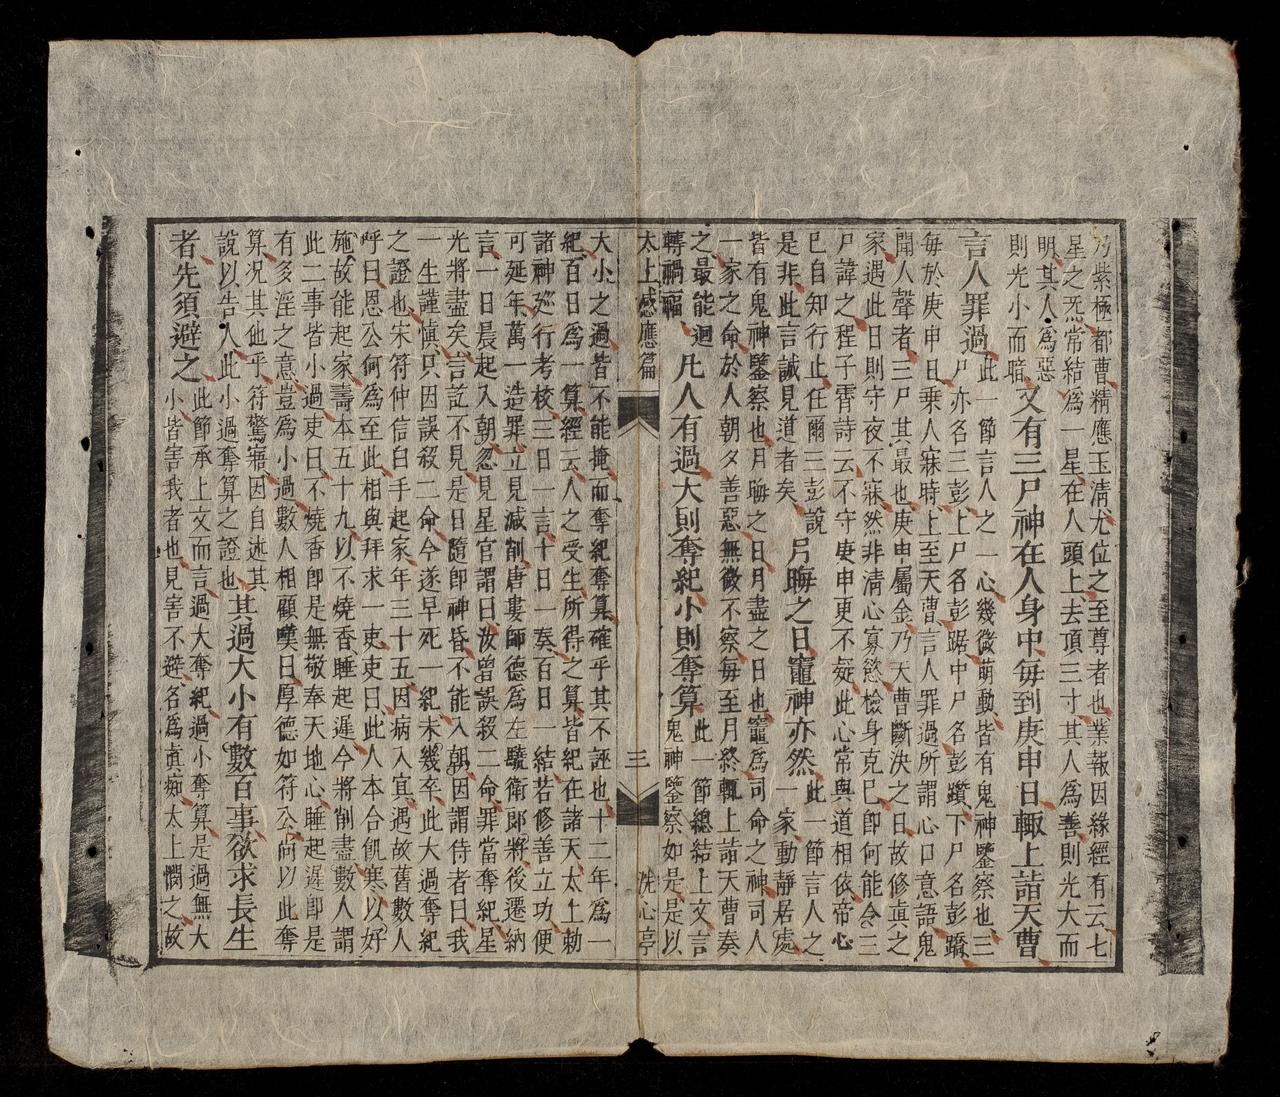 乃紫極都曹精應玉清尤位之至尊者也業報因緣經有云七
星之炁常結爲一星在人頭上去頂三寸其人爲善則光大而
明其人爲惡
則光小而暗
又有三尸神在人身中每到庚申日輙上詣天曹
言人罪過
此一節言人之一心幾微萌動皆有鬼神鑒察也三
尸亦名三彭上尸名彭踞中尸名彭躓下尸名彭蹻
每於庚申日乗人寐時上至天曹言人罪過所謂心口意語鬼
聞人聲者三尸其最也庚申屬金乃天曹斷決之日故修眞之
家遇此日則守夜不寐然非清心寡慾檢身克己卽何能令三
尸諱之程子霄詩云不守庚申更不疑此心常與道相依帝心
巳自知行止任爾三彭說
是非此言誠見道者矣
月晦之日竈神亦然
此一節言人之
一家動靜居處
皆有鬼神鑒察也月晦之日月盡之日也竈爲司命之神司人
一家之命於人朝夕善惡無微不察每至月終輒上詣天曹奏
之最能迴
轉禍福
凡人有過大則奪紀小則奪算
此一節總結上文言
鬼神鑒察如是是以
太上感應篇
三
洗心亭
大小之過皆不能掩而奪紀奪算確乎其不誣也十二年爲一
紀百日爲一算經云人之受生所得之算皆紀在諸天太上勅
諸神廵行考校三日一言十日一奏百日一結若修善立功便
可延年萬一造罪立見減削唐婁師德爲左驍衛郎將後遷納
言一日晨起入朝忽見星官謂曰汝曾誤殺二命罪當奪紀星
光將盡矣言訖不見是日隨卽神昏不能入朝因謂侍者曰我
一生謹慎只因誤殺二命今遂早死一紀未幾卒此大過奪紀
之證也宋符仲信白手起家年三十五因病入冥遇故舊數人
呼曰恩公何爲至此相與拜求一吏吏曰此人本合飢寒以好
施故能起家壽本五十九以不燒香睡起遲今將削盡數人謂
此二事皆小過吏曰不燒香卽是無敬奉天地心睡起遲卽是
有多淫之意豈爲小過數人相顧嘆曰厚德如符公尙以此奪
算况其他乎符驚寤因自述其
說以告人此小過奪算之證也
其過大小有數百事欲求長生
者先須避之
此節承上文而言過大奪紀過小奪算是過無大
小皆害我者也見害不避名爲眞痴太上憫之故